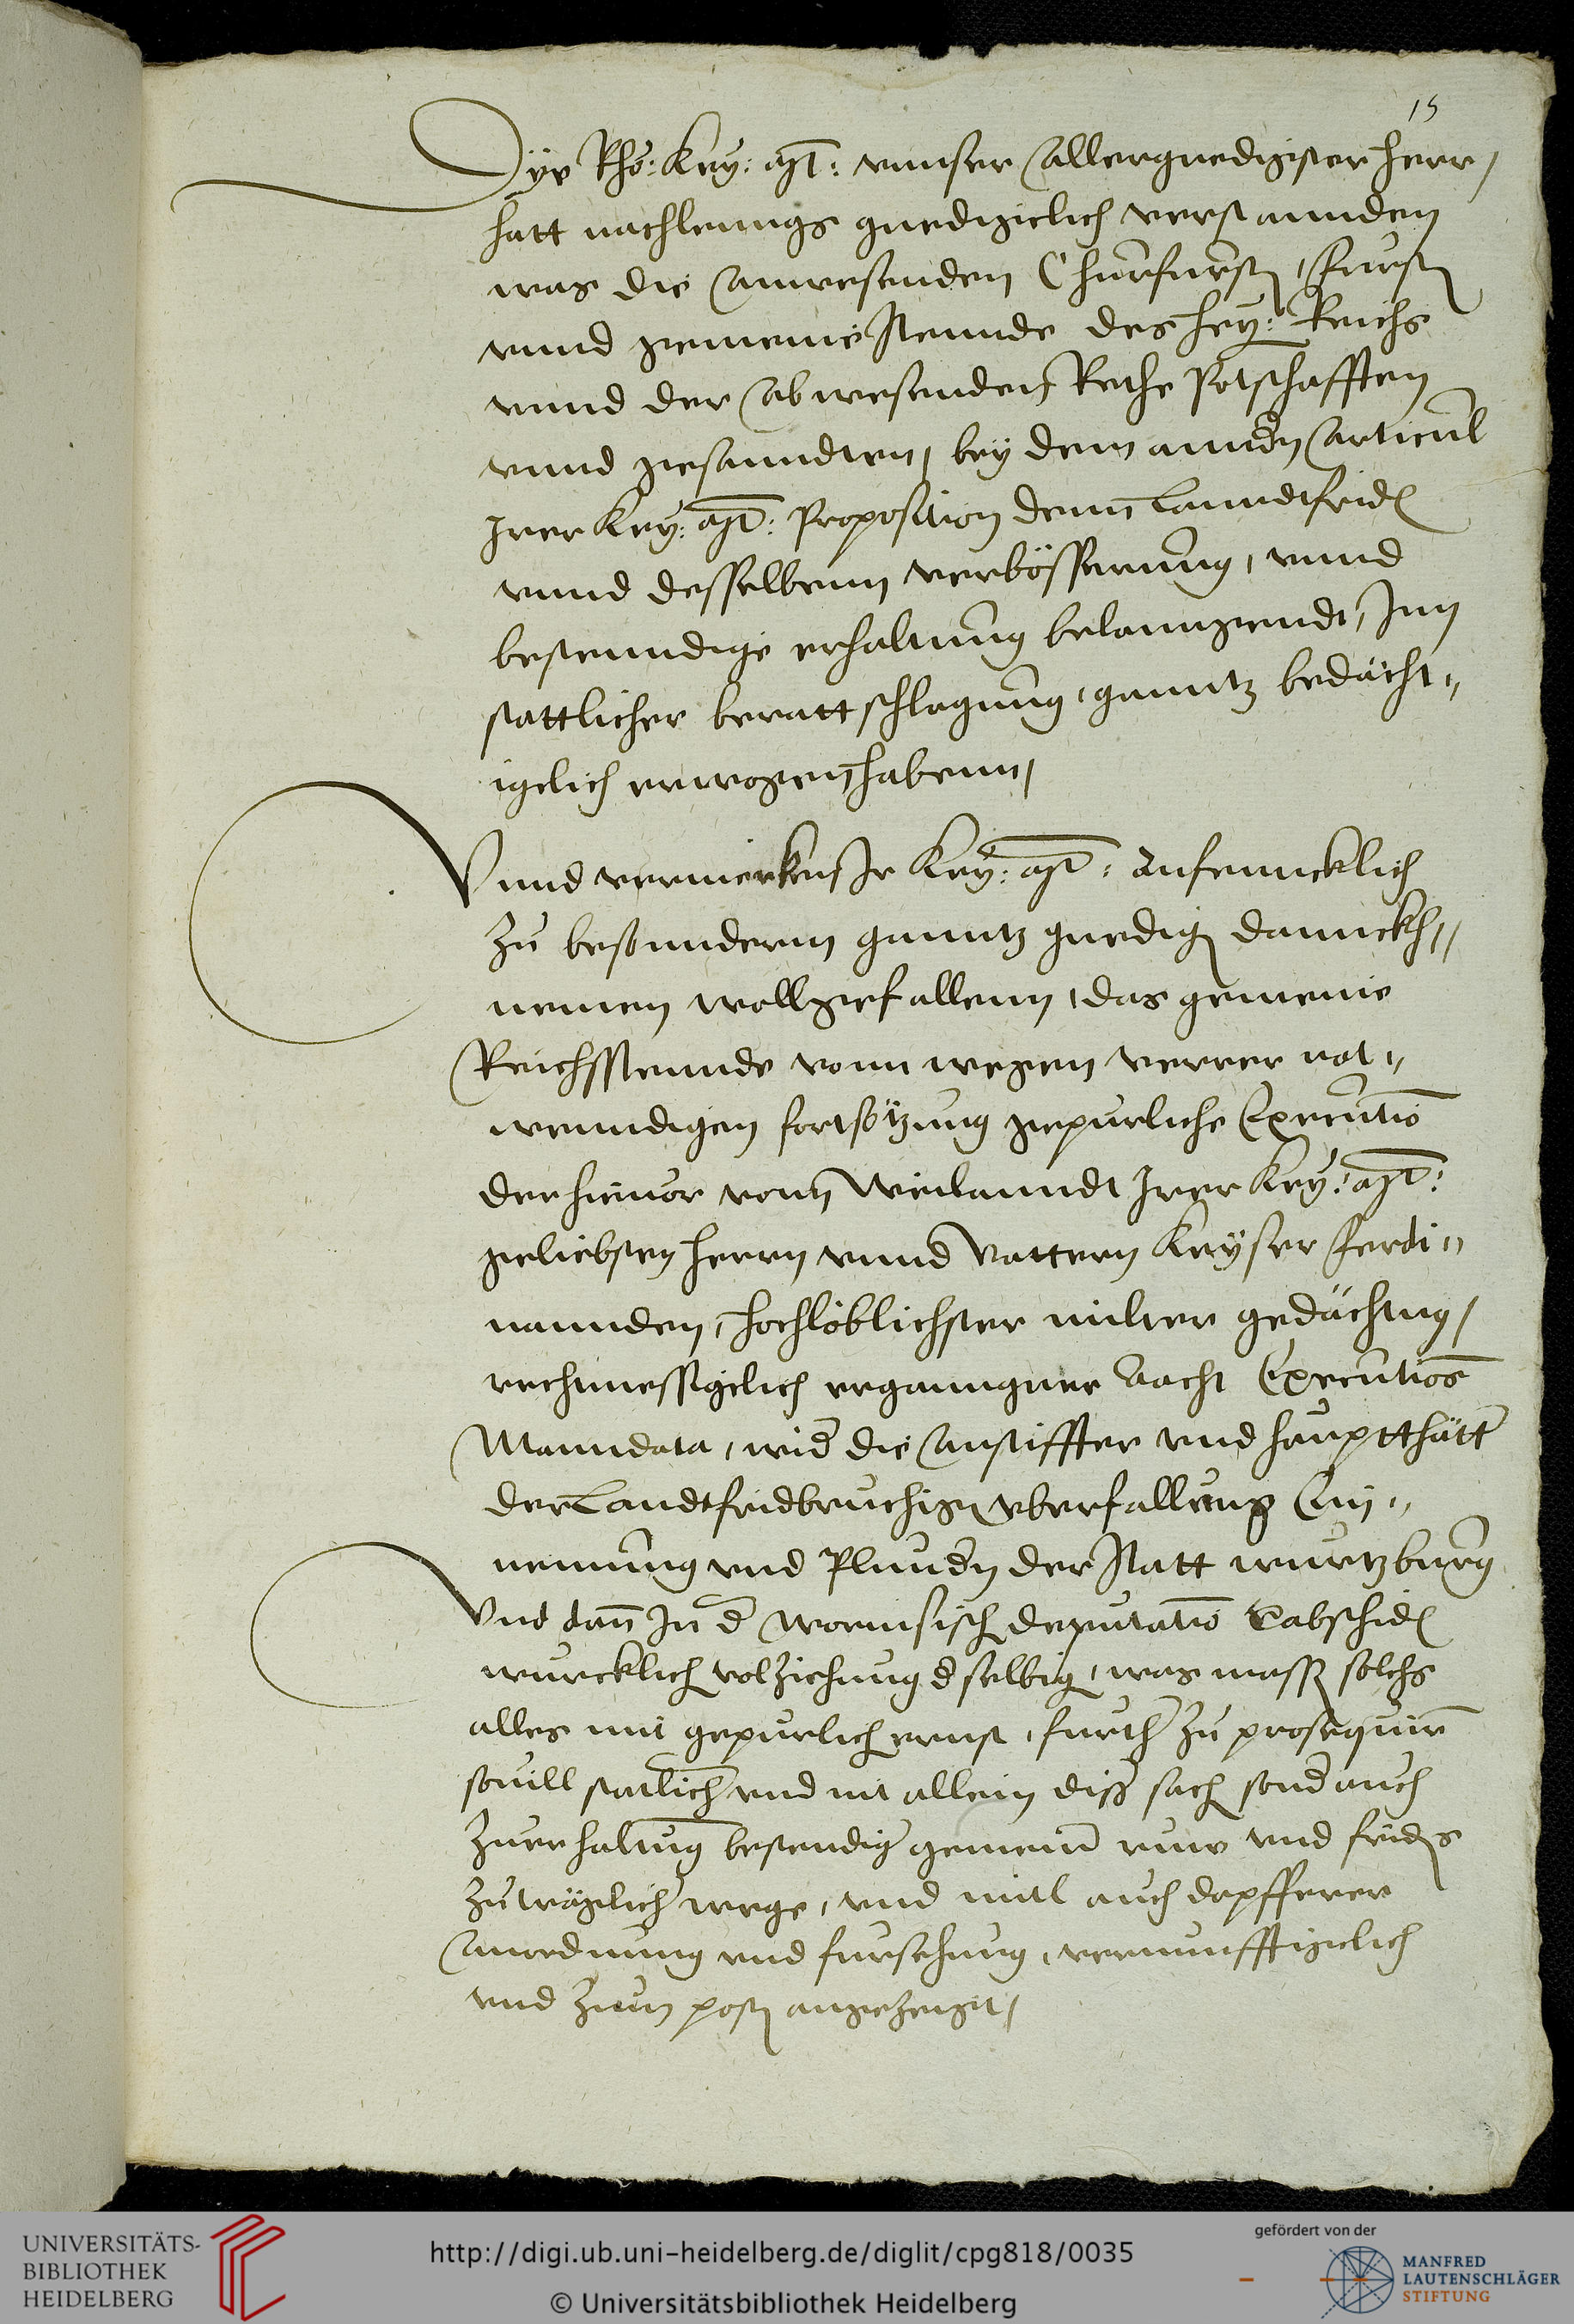 15
Dye Rhö: Key: Mt: vnnser Allergnedigster herr,
hatt nachlenngs gnediglich verstannden
was die Anwesenden Churfursten, Fursten
vnnd gemeine Stennde des hey: Reichs
vnnd der Abwesenden Rethe Potschafften
vnnd gesanndten, bey dem anndern Articul
Irer Key: Mt: Proposition denn Lanndtfriden
vnnd desselbenn verbösserung, vnnd
bestenndige erhaltung belanngendt, Inn
stattlicher berattschlagung, ganntz bedächt-
iglich erwogen habenn,
Vnnd vermerken Ir Key: Mt: Anfenncklich
zu besonnderm ganntz gnedigen dannckh-
nemen wollgefallenn, das gemeine
Reichsstennde vonn wegen verrer not-
wenndigen fortsötzung gepurliche Execution
der hieuor vonn Weilanndt Irer Key: Mt:
geliebsten herrn vnnd Vattern Keyser Ferdi-
nannden, hochlöblichster milter gedächtnus,
rechtmessiglich erganngner Aacht Executions
Manndata, wider die Anstiffter vnd hauptthätter
der Landtfridbruchigen vberfallung Ein-
nemung vnd Plundern der Statt wurtzburg
Vnd dann In der wormsischen deputation abschiden
wurcklich volziehung derselbigen, was massen solchs
alles mit gepurlichen ernst, further zu prosequirn
souill statlicher vnd nit allein diser sach sonder auch
zu erhaltung bestendiger gemeiner ruw vnd fridens
zuträglicher wege, vnd mitl auch dapfferer
Anordnung vnd fursehung, vernunfftiglich
vnd zum posten angezeigt,
UNIVERSITÄTS-
BIBLIOTHEK
HEIDELBERG
http://digi.ub.uni-heidelberg.de/diglit/cpg818/0035
© Universitätsbibliothek Heidelberg
gefördert von der
MANFRED
LAUTENSCHLÄGER
STIFTUNG